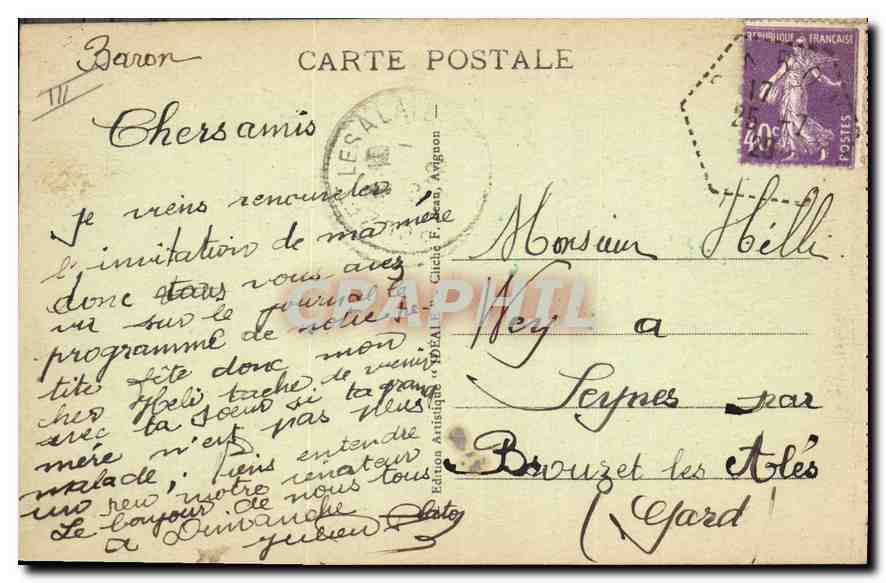 Baron
III
CARTE POSTALE
REPUBLIQUE FRANÇAISE
40c
POSTES
17
25 - 7
LES ALAI
Chers amis
je viens renouveler
l'invitation de ma mère
donc vous avez
vu sur le journal le
programme de notre pe-
tite fête donc mon
cher Heli tache de venir
avec ta soeur si ta grand
mère n'est pas plus
malade ; Viens entendre
un peu notre
Le bonjour de nous tous
a Dimanche
Julien
Edition Artistique "IDÉALE" Cliché F. Avignon -
CARTAPHIL
Monsieur Hélli
Ney a
Seynes par
Brouzet les Alés
(Gard)